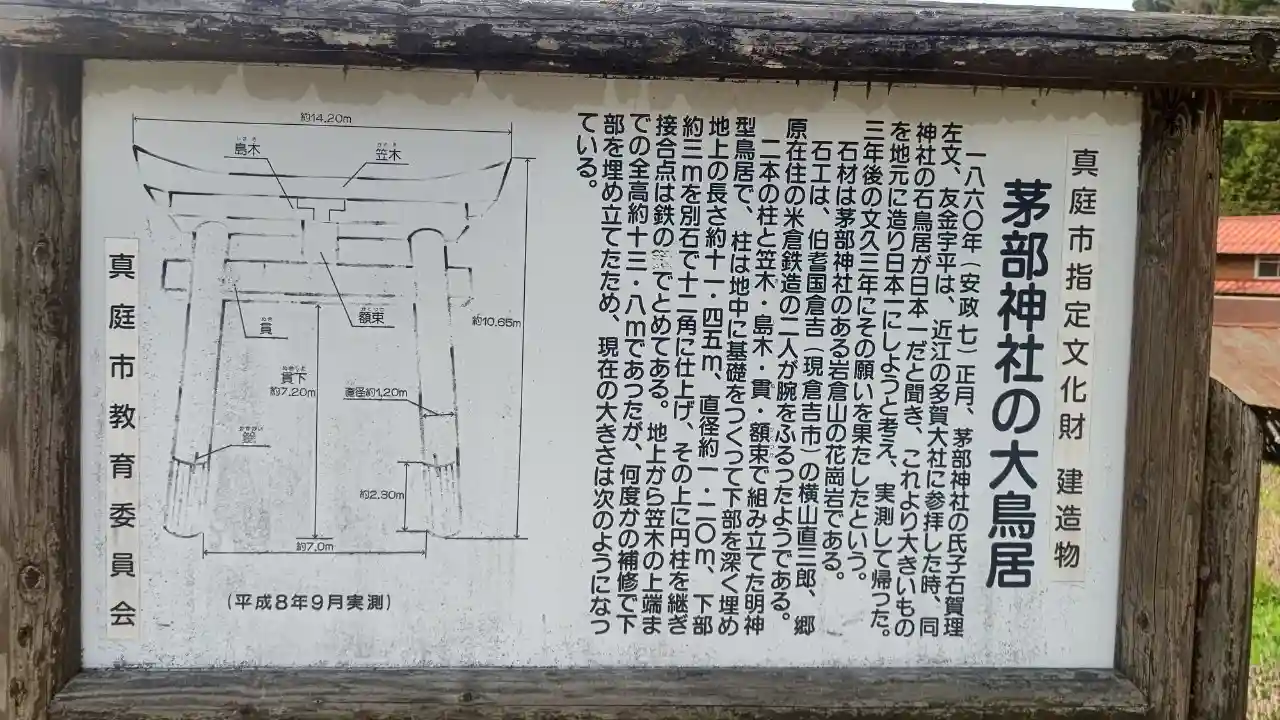 真庭市指定文化財 建造物
茅部神社の大鳥居
一八六〇年（安政七）正月、茅部神社の氏子石賀理
左文、友金宇平は、近江の多賀大社に参拝した時、同
神社の石鳥居が日本一だと聞き、これより大きいもの
を地元に造り日本一にしようと考え、実測して帰った。
三年後の文久三年にその願いを果たしたという。
石材は茅部神社のある岩倉山の花崗岩である。
石工は、伯耆国倉吉（現倉吉市）の横山直三郎、郷
原在住の米倉鉄造の二人が腕をふるったようである。
二本の柱と笠木・島木・貫・額束で組み立てた明神
型鳥居で、柱は地中に基礎をつくって下部を深く埋め
地上の長さ約十一・四五m、直径約一・二〇m、下部
約三mを別石で十二角に仕上げ、その上に円柱を継ぎ
接合点は鉄の でとめてある。地上から笠木の上端ま
での全高約十三・八mであったが、何度かの補修で下
部を埋め立てたため、現在の大きさは次のようになっ
ている。
約14.20m
島木
笠木
約10.65m
額束
貫
貫下
約7.20m
直径約1.20m
約2.30m
約7.0m
（平成8年9月実測）
真庭市教育委員会